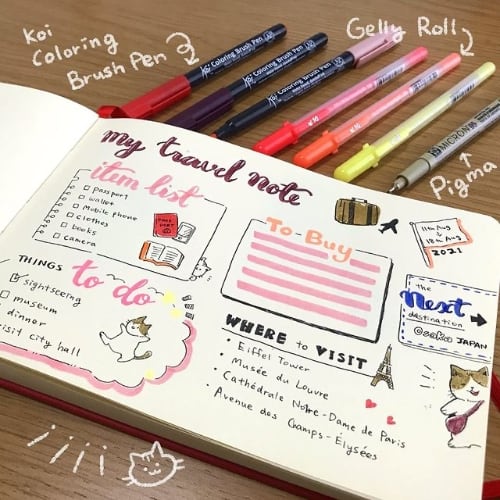 Koi
Coloring
Brush Pen
Gelly Roll
Pigma
Koi Coloring Brush Pen
Koi Coloring Brush Pen
Koi Coloring Brush Pen
MICRON
my travel note
item list
passport
wallet
Mobile phone
clothes
books
camera
THINGS to do
sightseeing
museum
dinner
visit city hall
To Buy
WHERE to VISIT
• Eiffel Tower
• Musée du Louvre
• Cathédrale Notre-Dame de Paris
• Avenue dos Champs-Elysées
11th Aug
18th Aug
2021
the
Next
destination
JAPAN